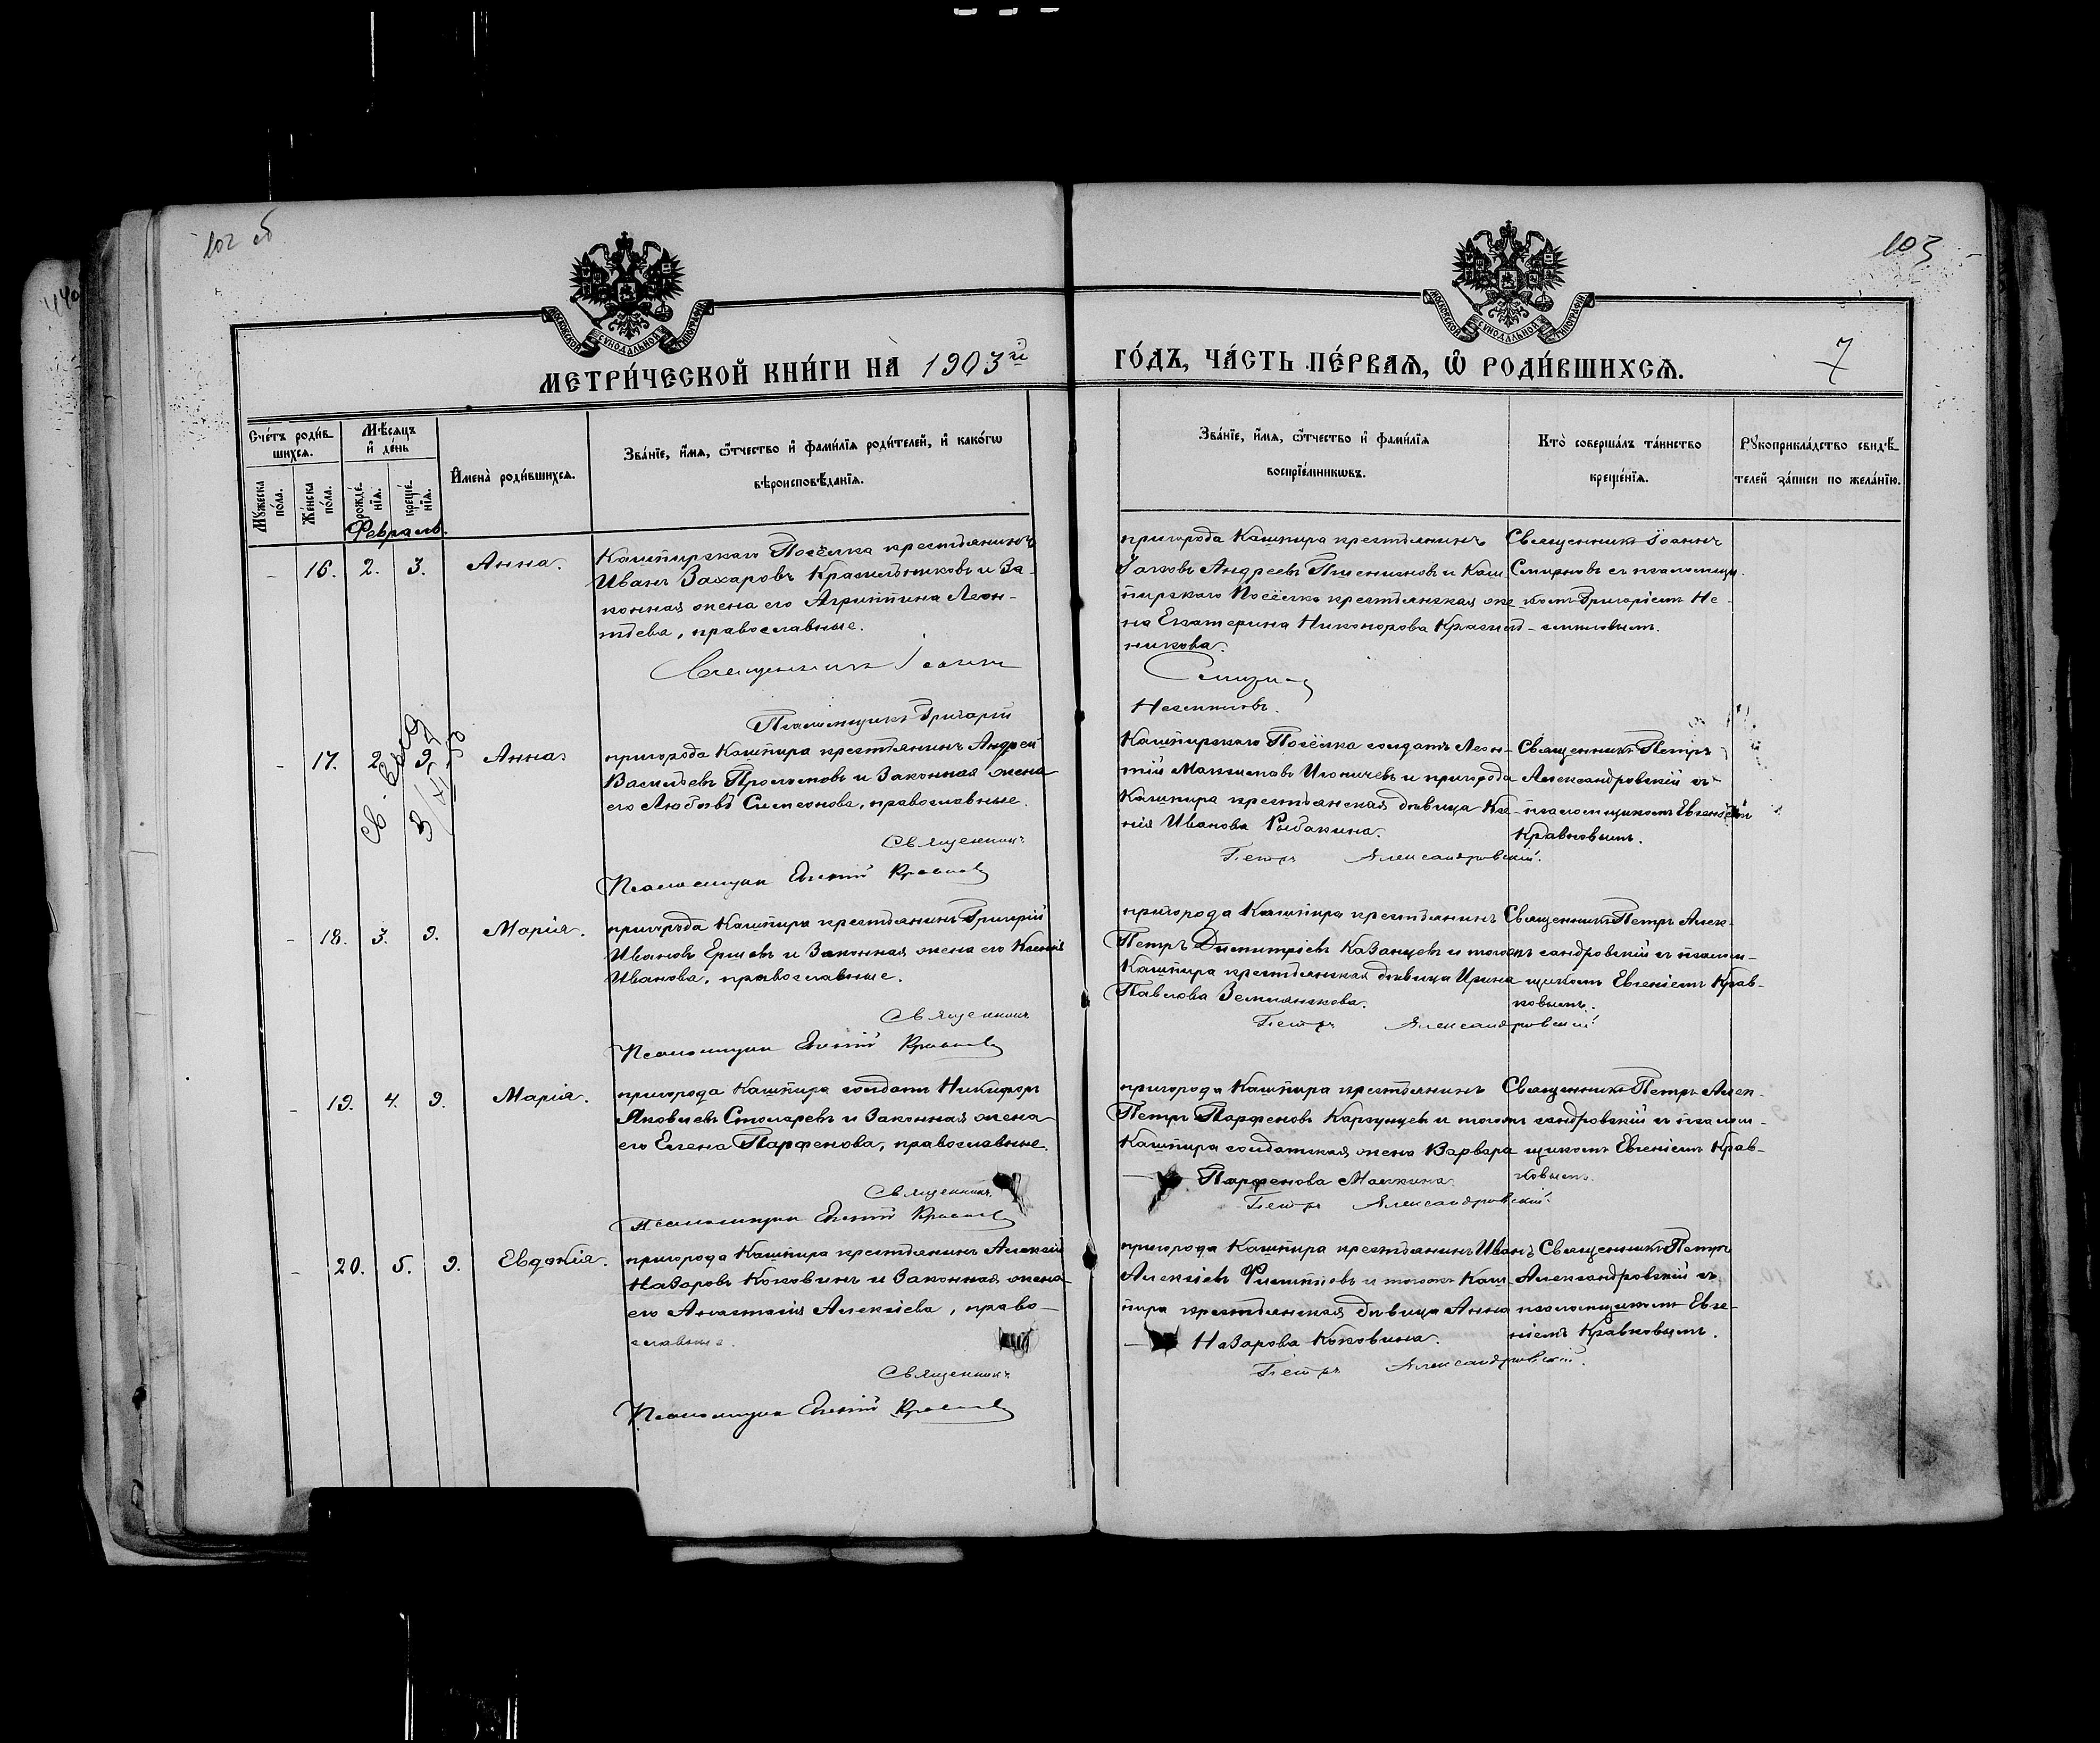 102 об
103
МОСКОВСКОЙ СѴНОДАЛЬНОЙ ТИПОГРАФІИ
МОСКОВСКОЙ СѴНОДАЛЬНОЙ ТИПОГРАФІИ
МЕТРИ́ЧЕСКОЙ КНИ́ГИ НА 1903й
ГО́ДЪ, ЧА́СТЬ ПЕ́РВАЯ, Ѽ РОДИ́ВШИХСЯ.
7
Сче́тъ роди́в-
шихся.
Мѣ́сяцъ
и҆ де́нь
Мꙋжеска по́ла.
Же́нска по́ла.
рожде́-
нїя.
креще́-
нїя.
И҆мена̀ роди́вшихся.
Зва́нїе, и҆́мя, ѻ҆́тчество и҆ фами́лїя роди́телей, и҆ како́гѡ
вѣроисповѣ́данїя.
Зва́нїе, и҆́мя, ѻ҆́тчество и҆ фами́лїя
воспрїе́мникѡвъ.
Кто̀ соверша́лъ та́инство
креще́нїя.
Рꙋкоприкла́дство свидѣ́-
телей за́писи по жела́нїю.
Февраль.
- 16. 2. 3. Анна.
Кашпирскаго Посёлка крестьянинъ
Иванъ Захаровъ Красильниковъ и за-
конная жена его Агриппина Леон-
тьева, православные.
Священникъ Іоаннъ
Псаломщикъ Григорій
пригорода Кашпира крестьянинъ
Іаковъ Андреевъ Пшеничновъ и Каш-
пирскаго Посёлка крестьянская же-
на Екатерина Никонорова Красиль-
никова.
Смирнов
Несмеловъ.
Священникъ Іоаннъ
Смирновъ съ псаломщи-
комъ Григоріемъ Не-
смеловымъ.
- 17. 2. 9. Анна.
пригорода Кашпира крестьянинъ Андрей
Васильевъ Проломовъ и законная жена
его Любовь Симеонова, православные.
Священникъ
Псаломщик Евгений Кравков
Кашпирскаго Посёлка солдатъ Леон-
тій Максимовъ и пригорода
Кашпира крестьянская дѣвица Ксе-
нія Иванова Рыбакина.
Петръ Александровскій.
Священникъ Петръ
Александровскій съ
псаломщикомъ Евгеніемъ
Кравковымъ.
- 18. 3. 9. Марія.
пригорода Кашпира крестьянинъ Григорій
Ивановъ Ершовъ и законная жена его Ксенія
Иванова, православные.
Священникъ
Псаломщик Евгений Кравков
пригорода Кашпира крестьянинъ
Петръ Димитріевъ Казанцевъ и тогожъ
Кашпира крестьянская дѣвица Ирина
Павлова Землянскова.
Петръ Александровский.
Священникъ Петръ Алек-
сандровскій съ псалом-
щикомъ Евгеніемъ Крав-
ковымъ.
- 19. 4. 9. Марія.
пригорода Кашпира солдатъ Никифоръ
Яковлевъ Столяревъ и законная жена
его Елена Парфенова, православные.
Священникъ
Псаломщик Евгений Кравков
пригорода Кашпира крестьянинъ
Петръ Парфеновъ Карзунцев и тогожъ
Кашпира солдатская жена Варвара
Парфенова Малкина.
Петръ Александровскій.
Священникъ Петръ Алек-
сандровскій съ псалом-
щикомъ Евгеніемъ Крав-
ковымъ.
- 20. 5. 9. Евдокія.
пригорода Кашпира крестьянинъ Алексій
Назаровъ Коковинъ и законная жена
его Анастасія Алексіева, право-
славные.
Священникъ
Псаломщик Евгений Кравков
пригорода Кашпира крестьянинъ Иванъ
Алексіевъ Филипповъ и тогожъ Каш-
пира крестьянская дѣвица Анна
Назарова Коковина.
Петръ Александровскій.
Священникъ Петръ
Александровскій съ
псаломщикомъ Евге-
ніемъ Кравковымъ.